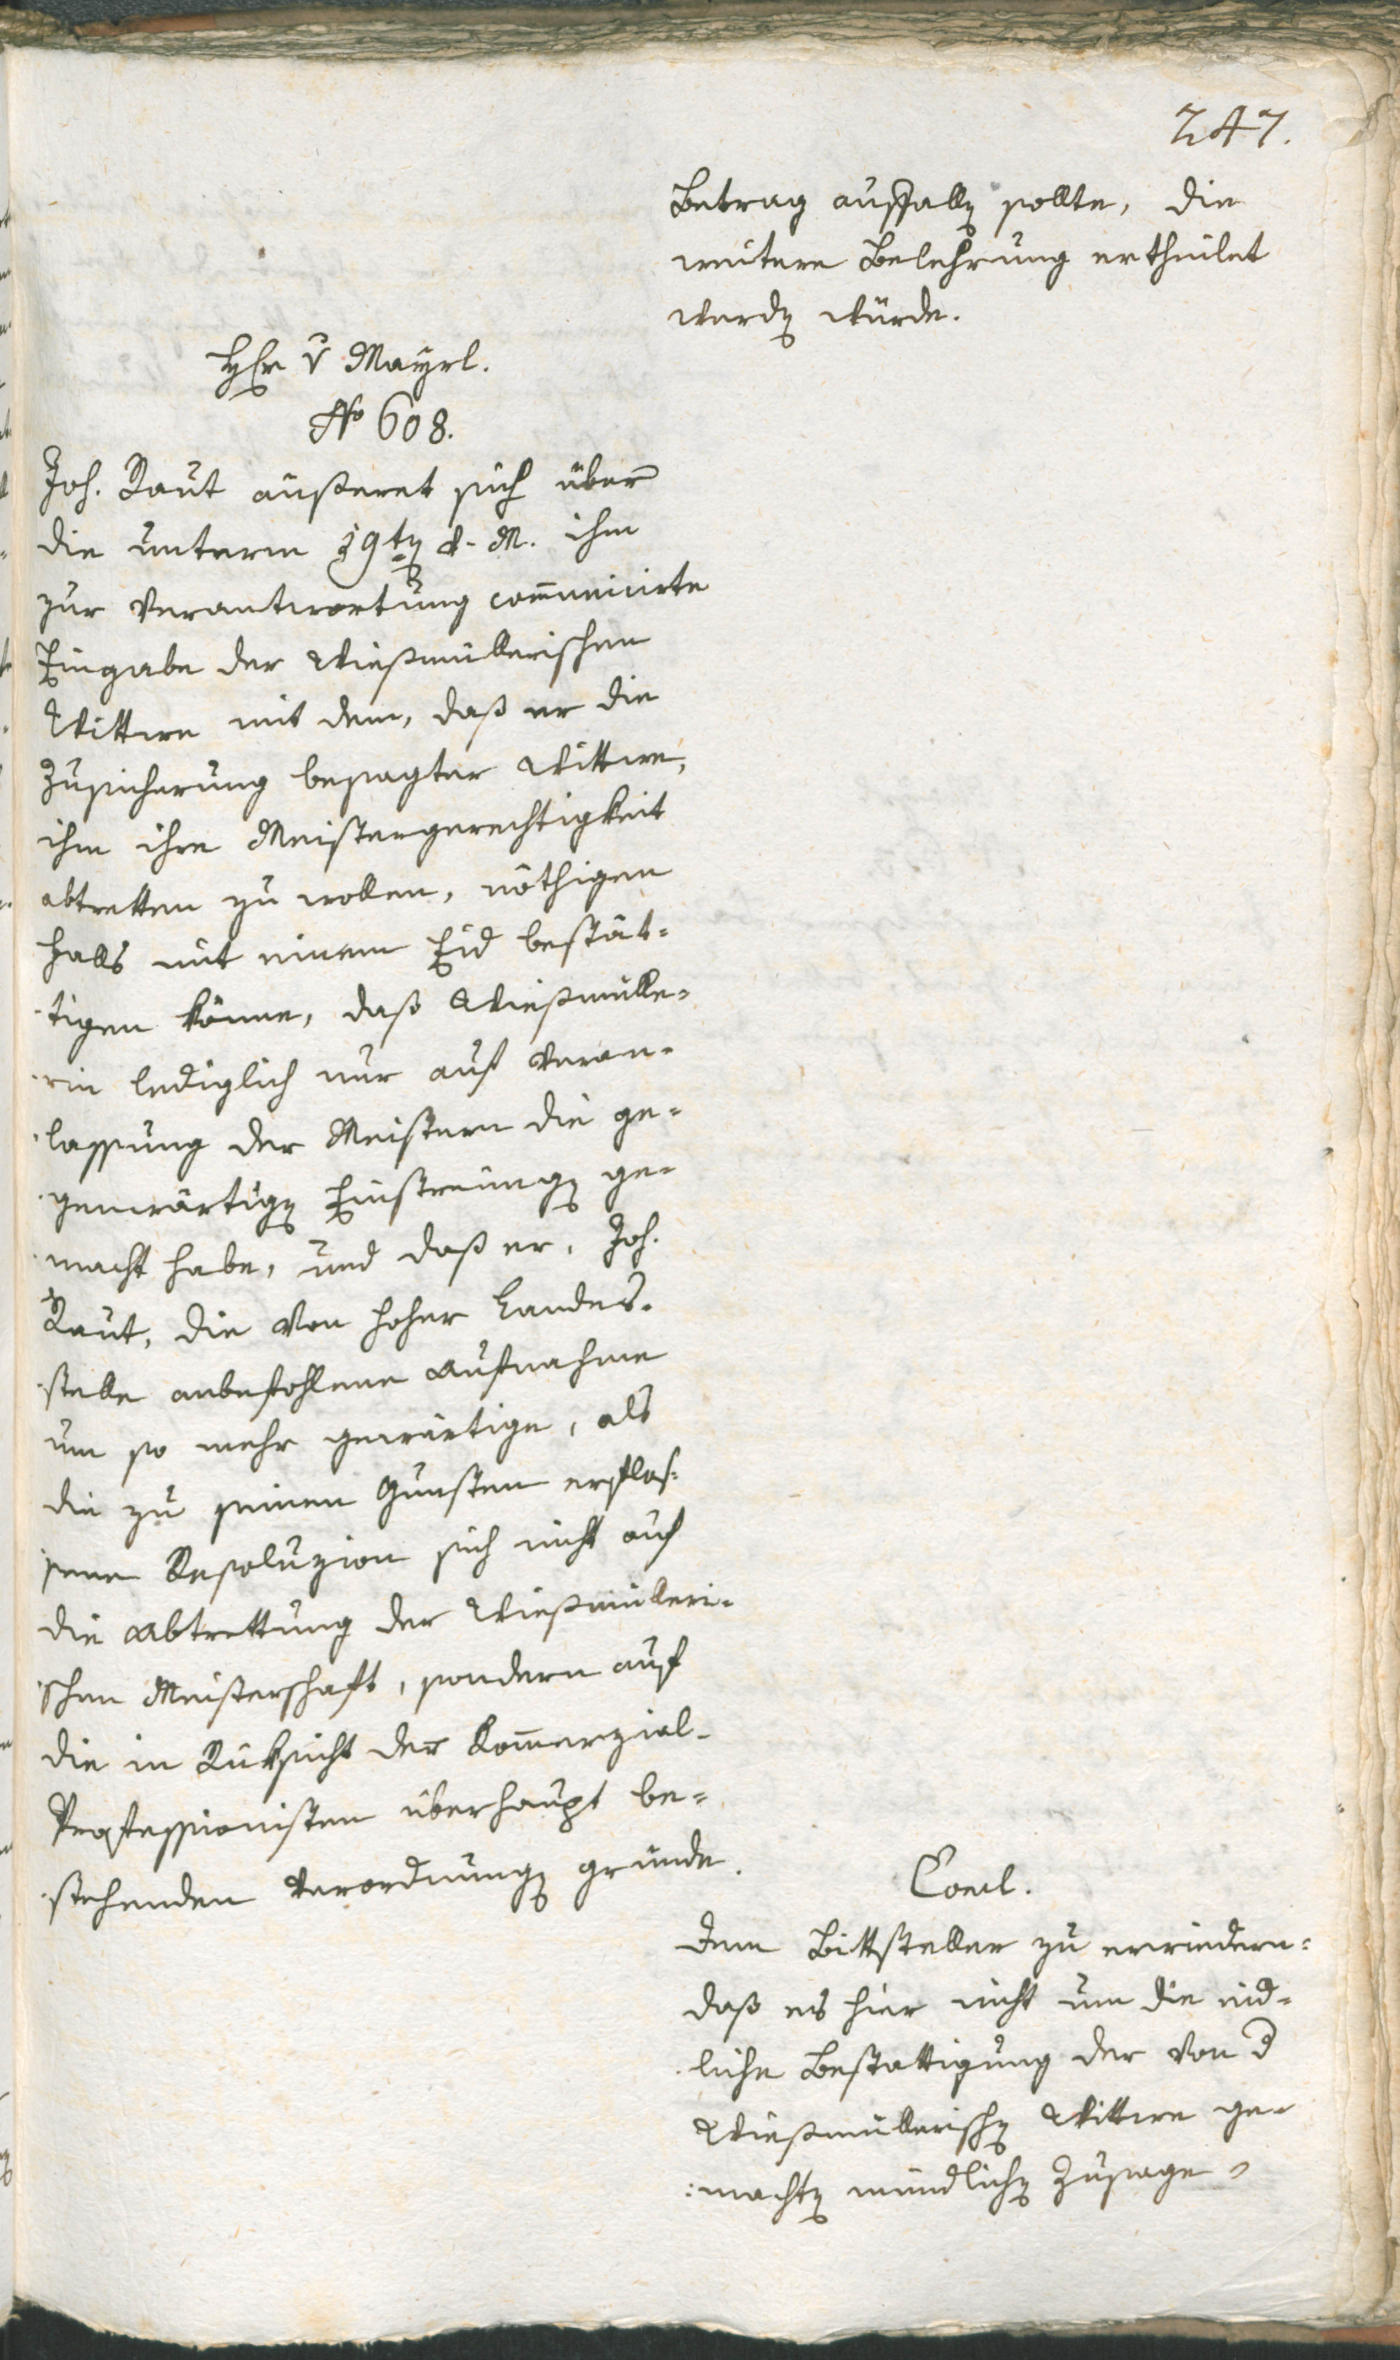 247.
Betrag ausfallen sollte, die
weitere Belehrung ertheilet
werden würde.
Hr v Mayrl.
No 608.
Joh. Raut äußeret sich über
die unterm 19ten d. M. ihm
zur Verantwortung com̄unicirte
Eingabe der Wießmüllerischen
Wittwe mit dem, daß er die
Zusicherung besagter Wittwe,
ihm ihre Meistergerechtigkeit
abtretten zu wollen, nöthigen
Falls mit einem Eid bestät-
tigen könne, daß Wießmülle-
rin lediglich nur auf Veran-
lassung der Meistern die ge-
genwärtigen Einstreuungen ge-
macht habe, und daß er, Joh.
Raut, die von hoher Landes-
stelle anbefohlene Aufnahme
um so mehr gewärtige, als
die zu seinen Gunsten erflos-
sene Resoluzion sich nicht auf
die Abtrettung der Wießmülleri-
schen Meisterschaft, sondern auf
die in Rüksicht der Kom̄erzial-
Professionisten überhaupt be-
stehenden Verordnungen gründe.
Concl.
Dem Bittsteller zu erwiedern:
daß es hier nicht um die eid-
liche Bestättigung der von d
Wießmüllerischen Wittwe ge-
machten mündlichen Zusage